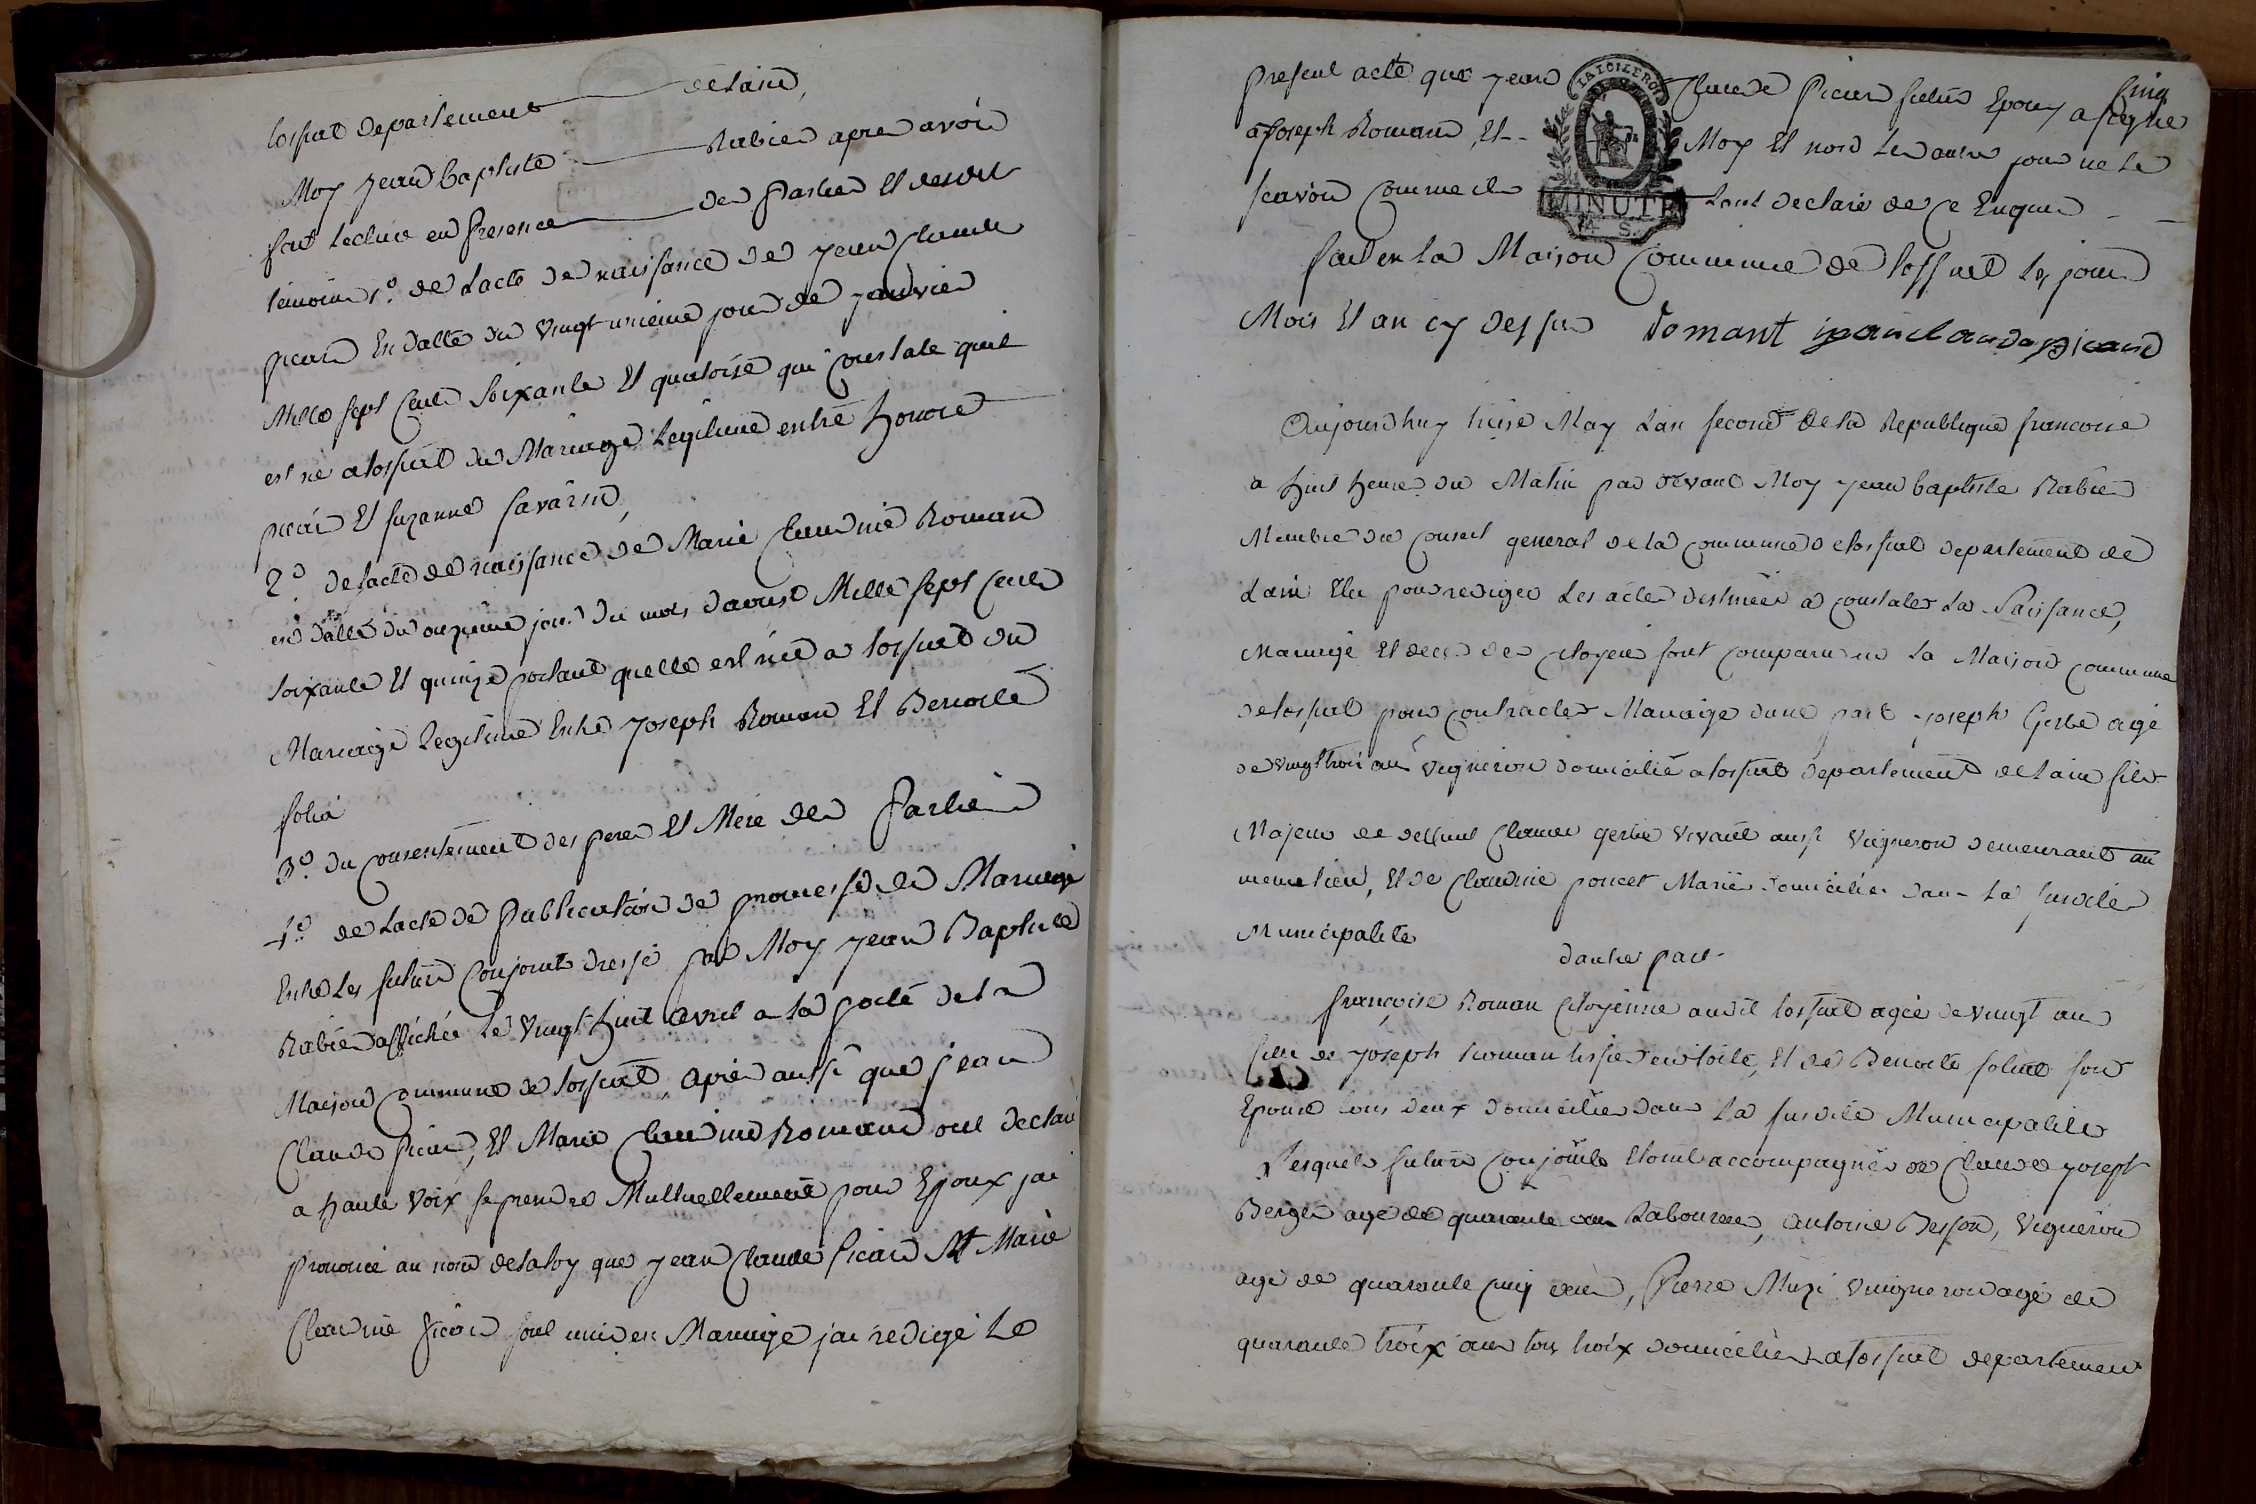 torsiat departement delain,
Moy jean baptiste Rabier apres avoir
fait lecture en presence des parties et desdit
temoins 1o. de lacte de naissance de jean claude
picard en datte du vingt unieme jour de janvier
Mille sept cent soixante et quatorse qui constate quil
est né a torsiat du Mariage legitime entre honore
picar et suzanne savarin,
2o. de lacte de naissance de Marie claudine Roman
en datte du onzieme jour du mois daoust Mille sept cent
soixante et quinze portant quelle est née a torsiat du
Mariage legitime entre joseph Roman et Benoite
solia
3o. du consentement des pere et Mere des parties
4o. de lacte de publication de promesse de Mariage
entre les futurs conjoint dressé par Moy jean Baptiste
Rabier affichée le vingt huit avril a la porte de la
Maison commune de torsiat, apres aussi que jean
claude picar, et Marie claudine Roman ont declaré
a haute voix se prendre Mutuellement pour Epoux jai
prononcé au nom de la loy que jean claude picar et Marie
claudine picar sont unis en Mariage jai redigé le
cinq
present acte que jean claude picard futur Epoux a signé
a joseph Roman, et Moy et non les autres pour ne le
scavoir comme ils lont declaré de ce Enquis
LA LOI LE ROI
MINUTE
4 S.
fait en la Maison commune de torsiat les jour
Mois et an cy dessus Romant jean claude picard
Aujourdhuy treise May lan second de la Republique francoise
a huit heure du Matin par devant Moy jean baptiste Rabier
Membre du conseil general de la commune de torsiat departement de
lain Elu pour rediger les actes destinées a constater la Naissance,
Mariage et deces des citoyens sont comparu en la Maison commune
de torsiat pour contracter Mariage dune part joseph Gerbe agé
de vingt trois ans vigneron domicilié a torsiat departement de lain fils
Majeur de deffunt claude gerbe vivant aussi vigneron demeurant au
meme lieu, et de claudine poncet Mariés domiciliés dans la susdite
Municipalite
dautre part
françoise Roman citoyenne audit torsiat agée de vingt ans
fille de joseph Roman tissier en toile, et de Benoite soliat son
Epouse tous deux domicilies dans la susdite Municipalite
Lesquels futurs conjoints etoint accompagnés de claude joseph
Berger agé de quarante ans Laboureur, antoine Besson, vigneron
agé de quarante cinq ans, Pierre Muzi vuigneron agé de
quarante troix ans tous troix domicilies a torsiat departement